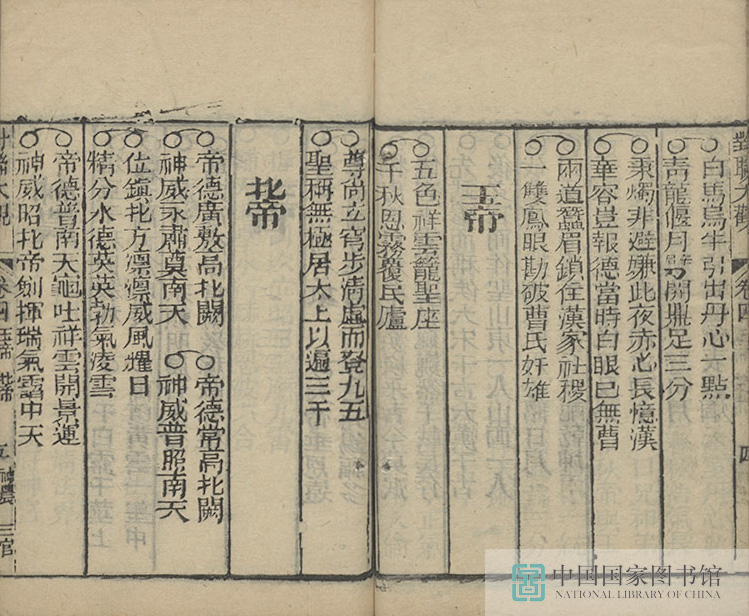 對聯大觀 卷四 四
白馬烏牛引出丹心一點
青龍偃月開鼎足三分
秉燭非避嫌此夜亦心長憶漢
華容豈報德當時白眼已無曹
兩道蠶眉鎖住漢家社稷
一雙鳳眼勘破曹氏奸雄
玉帝
五色祥雲籠聖座
千秋恩霧覆民廬
尊尚立穹步清虛而登九五
聖稱無極居太上以遍三千
北帝
帝德廣敷高北闕 帝德常高北闕
神威永肅奠南天 神威普照南天
位鎮北方凛凛威風耀日
精分水德英英勃氣凌雲
帝德普南天龜吐祥雲開景運
神威昭北帝劍揮瑞氣靄中天
對聯大觀 卷四 玉帝 北帝 五 神農 三官
中国国家图书馆
NATIONAL LIBRARY OF CHINA